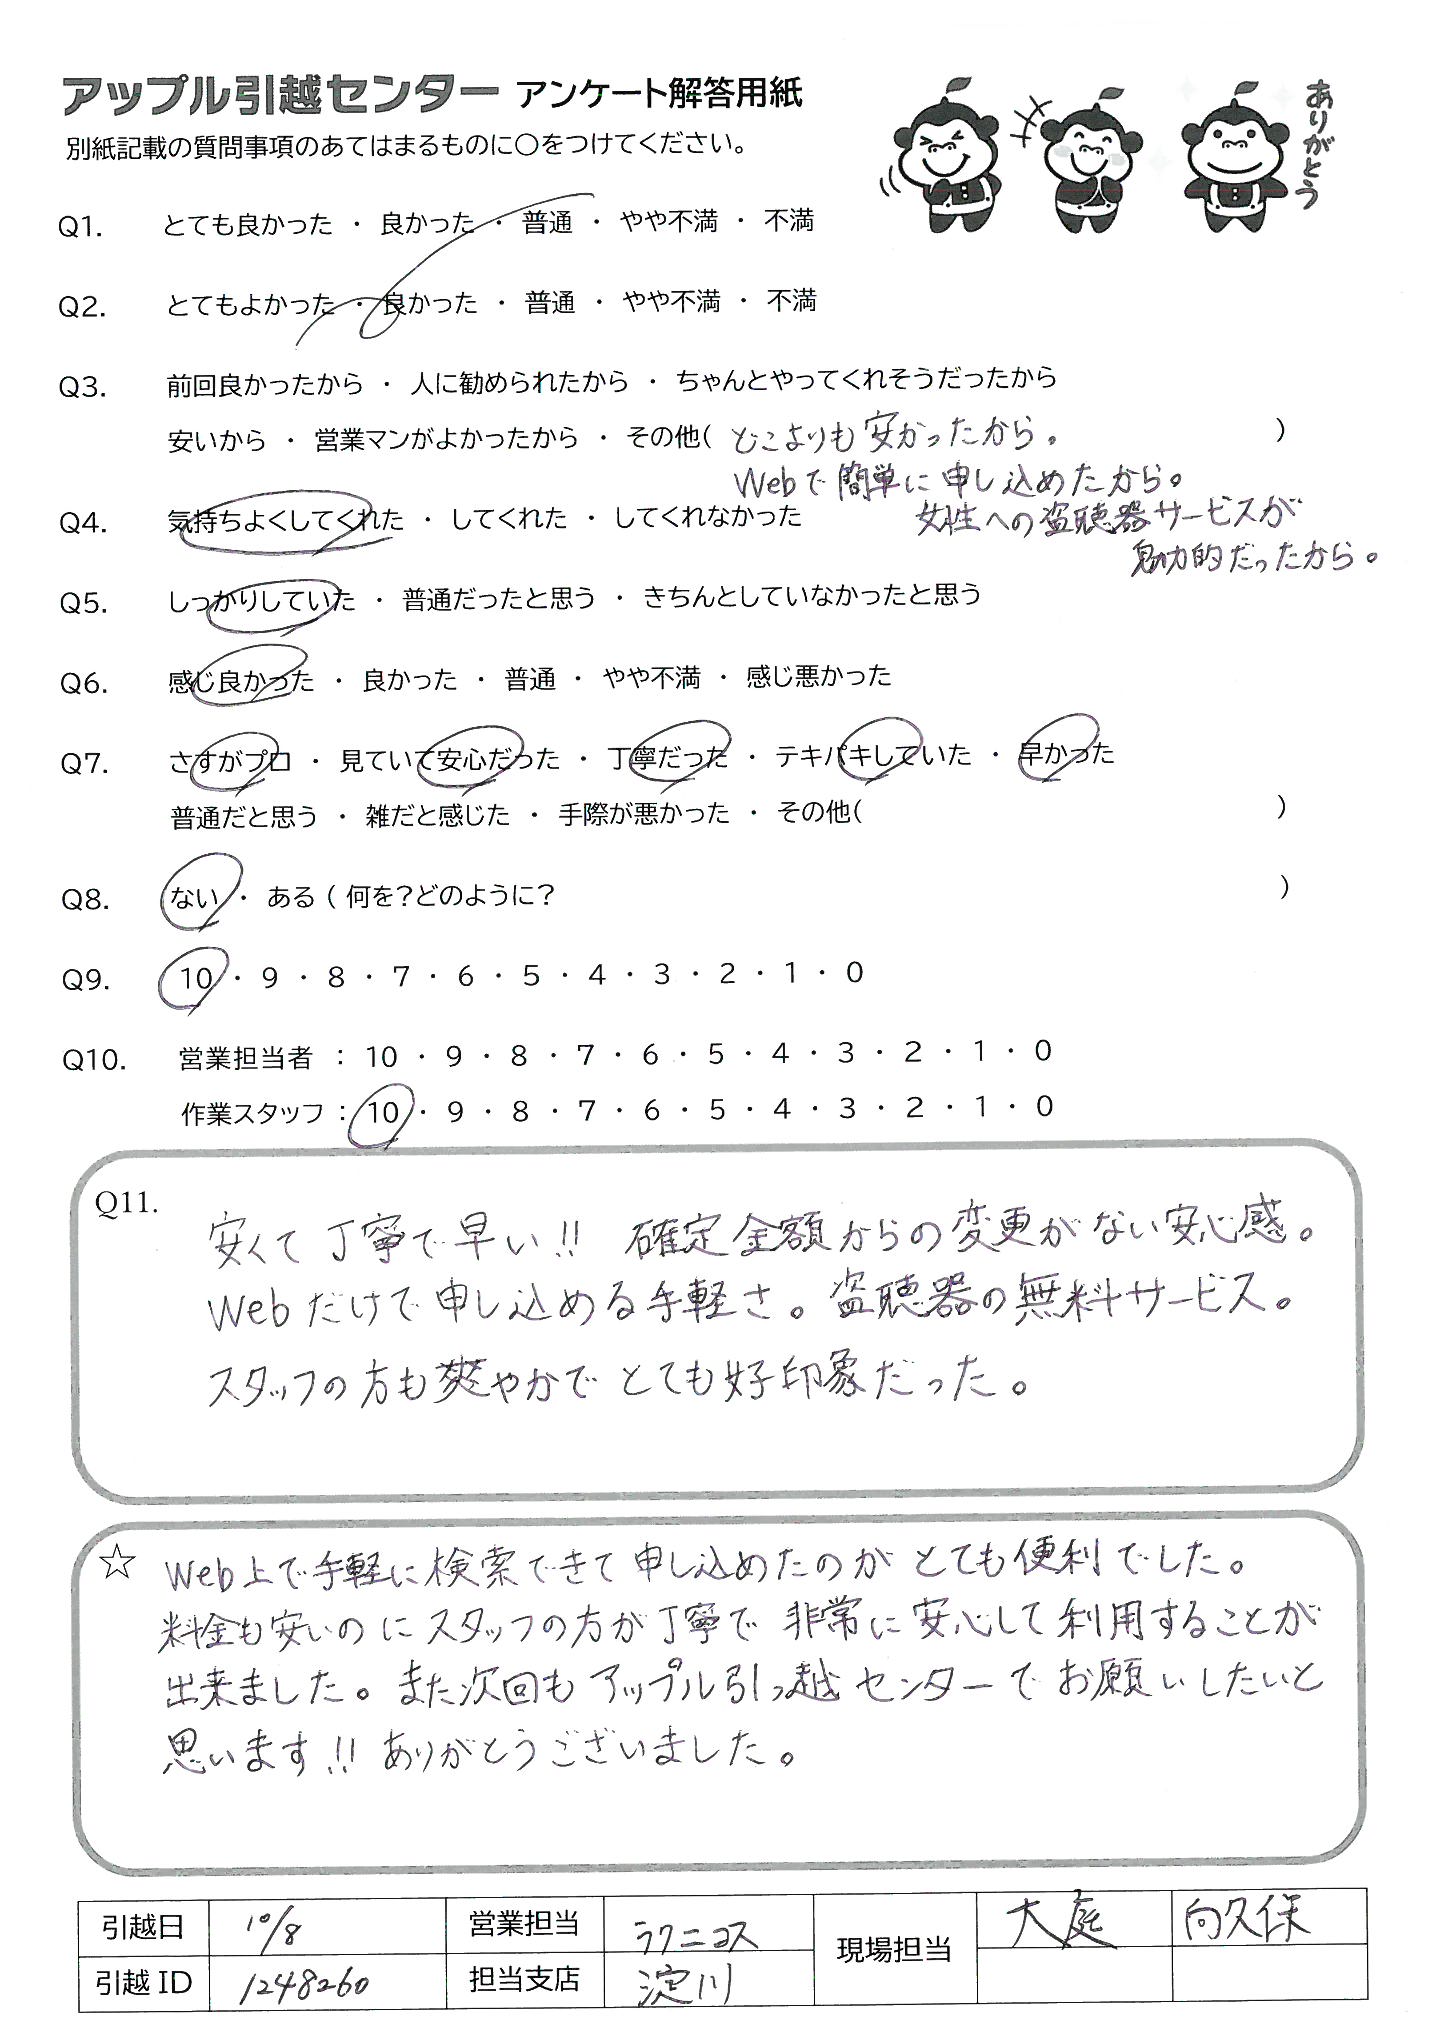 アップル引越センター アンケート解答用紙
別紙記載の質問事項のあてはまるものに○をつけてください。
ありがとう
Q1. とても良かった ・ 良かった ・ 普通 ・ やや不満 ・ 不満
Q2. とてもよかった ・ 良かった ・ 普通 ・ やや不満 ・ 不満
Q3. 前回良かったから ・ 人に勧められたから ・ ちゃんとやってくれそうだったから
安いから ・ 営業マンがよかったから ・ その他( どこよりも安かったから。 )
Webで簡単に申し込めたから。
女性への盗聴器サービスが
魅力的だったから。
Q4. 気持ちよくしてくれた ・ してくれた ・ してくれなかった
Q5. しっかりしていた ・ 普通だったと思う ・ きちんとしていなかったと思う
Q6. 感じ良かった ・ 良かった ・ 普通 ・ やや不満 ・ 感じ悪かった
Q7. さすがプロ ・ 見ていて安心だった ・ 丁寧だった ・ テキパキしていた ・ 早かった
普通だと思う ・ 雑だと感じた ・ 手際が悪かった ・ その他( )
Q8. ない ・ ある ( 何を?どのように? )
Q9. 10 ・ 9 ・ 8 ・ 7 ・ 6 ・ 5 ・ 4 ・ 3 ・ 2 ・ 1 ・ 0
Q10. 営業担当者 : 10 ・ 9 ・ 8 ・ 7 ・ 6 ・ 5 ・ 4 ・ 3 ・ 2 ・ 1 ・ 0
作業スタッフ : 10 ・ 9 ・ 8 ・ 7 ・ 6 ・ 5 ・ 4 ・ 3 ・ 2 ・ 1 ・ 0
Q11.
安くて丁寧で早い!! 確定金額からの変更がない安心感。
Webだけで申し込める手軽さ。盗聴器の無料サービス。
スタッフの方も爽やかでとても好印象だった。
☆ Web上で手軽に検索できて申し込めたのがとても便利でした。
料金も安いのにスタッフの方が丁寧で非常に安心して利用することが
出来ました。また次回もアップル引っ越センターでお願いしたいと
思います!! ありがとうございました。
引越日 10/8 営業担当 ラクニコス 現場担当 大庭 向久保
引越ID 1248260 担当支店 淀川